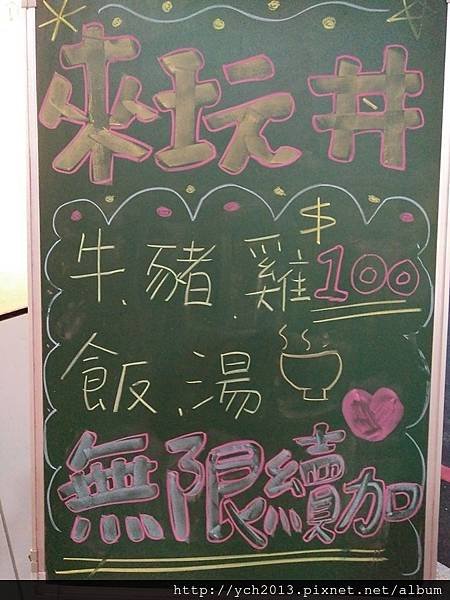 來玩井
牛、豬、雞 $100
飯、湯
無限續加
http://ych2013.pixnet.net/album